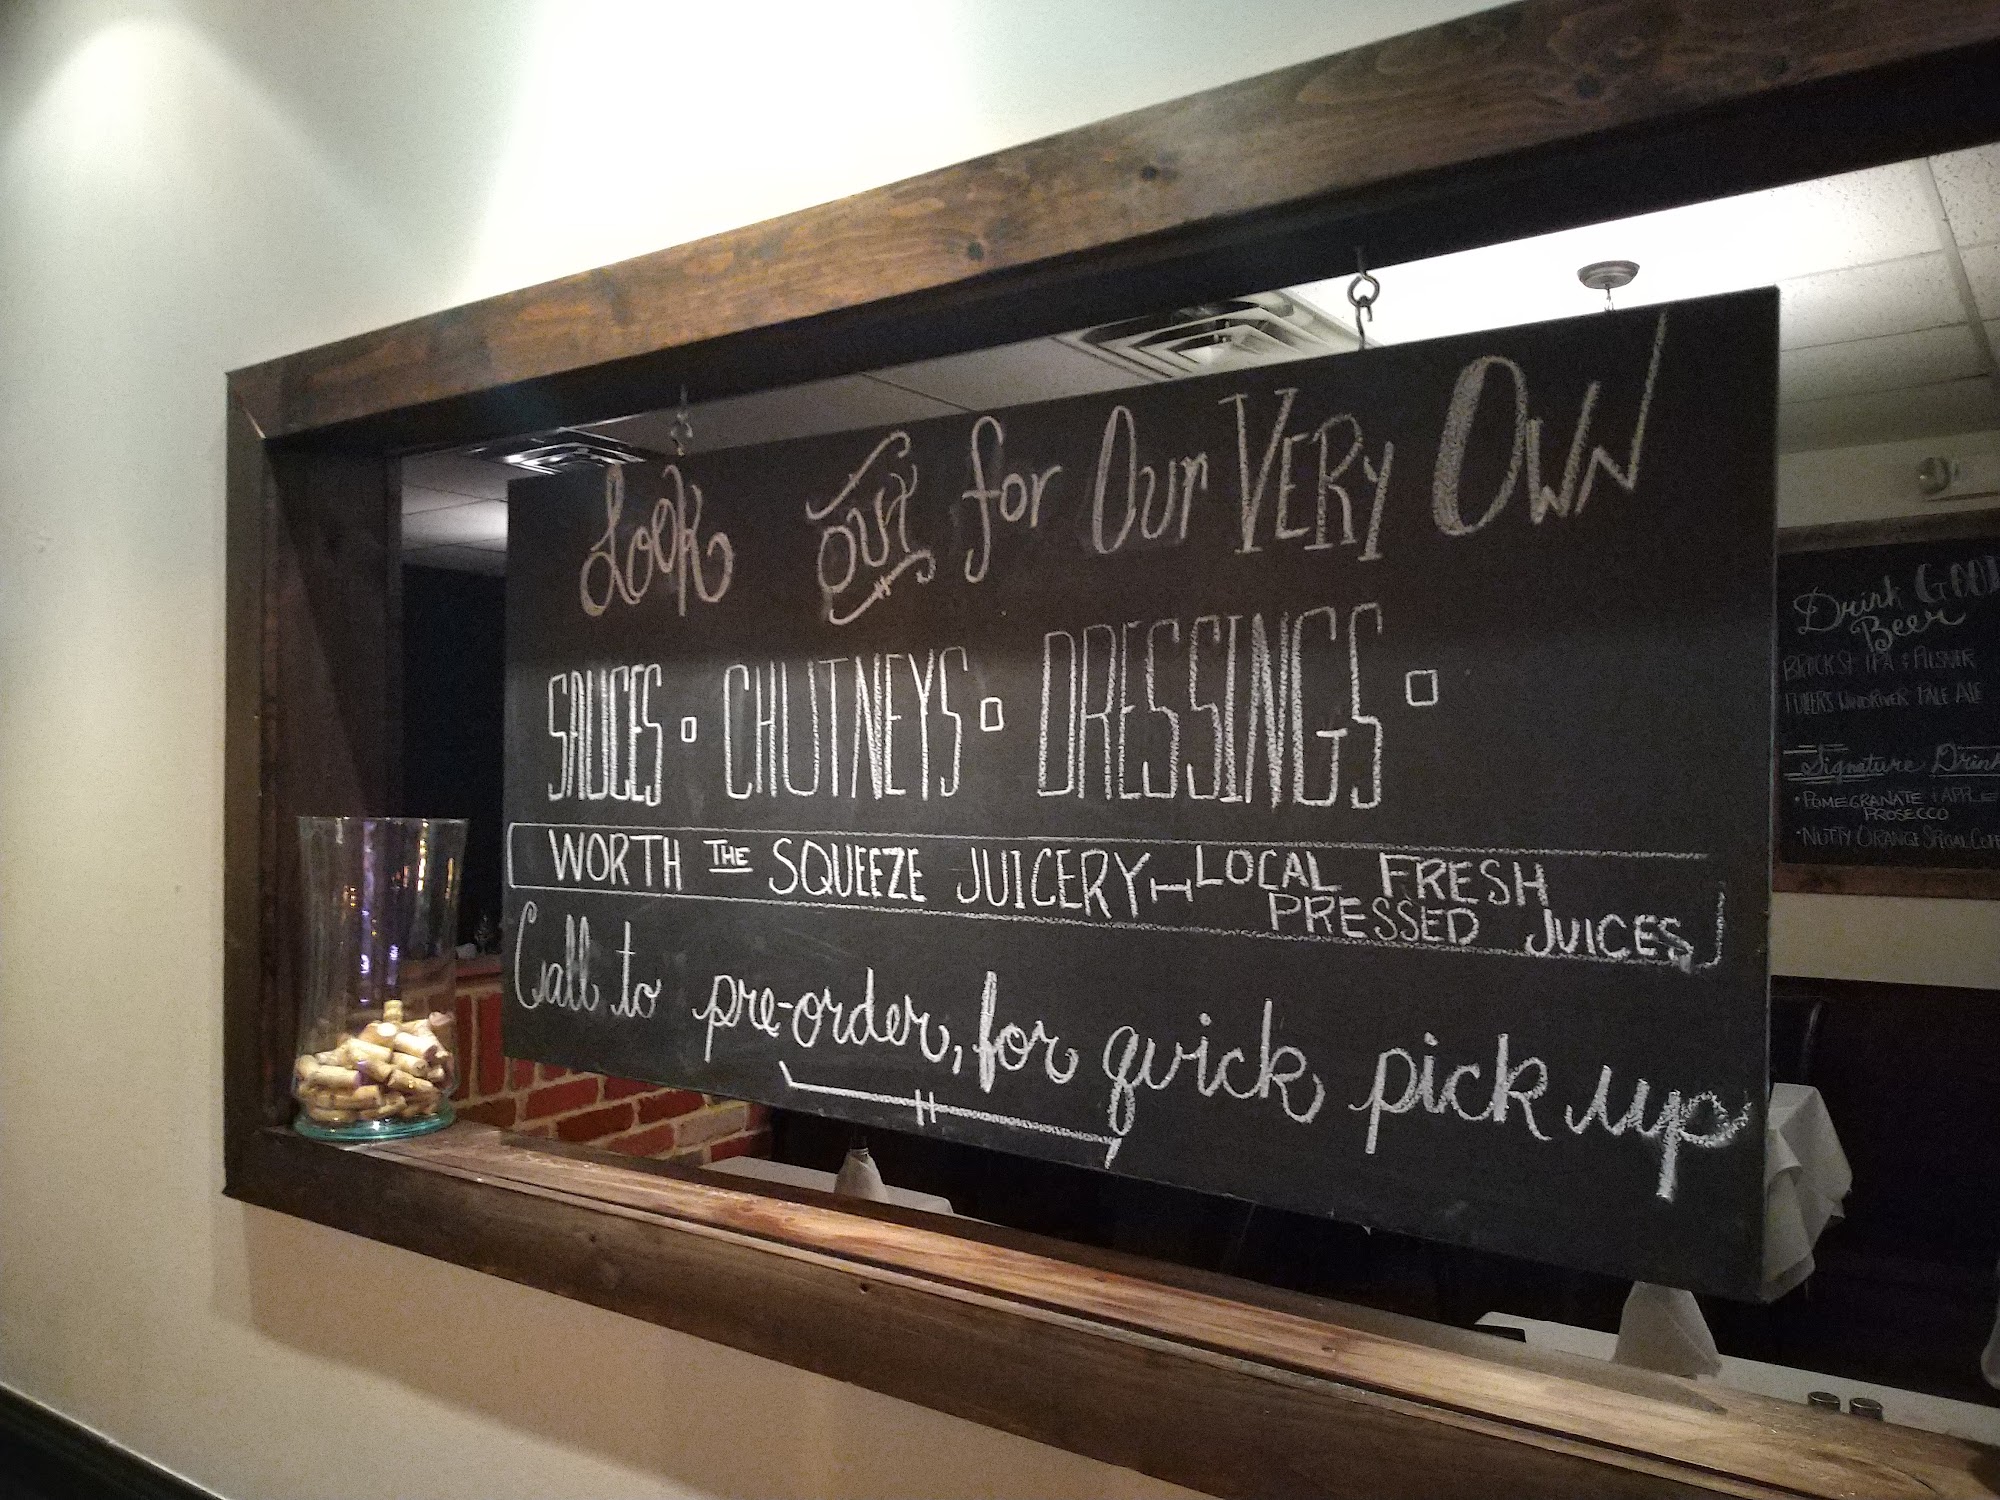 Look out for Our VERy OWN
SAUCES • CHUTNEYS • DRESSINGS •
WORTH THE SQUEEZE JUICERY - LOCAL FRESH
PRESSED JUICES
Call to pre-order, for quick pick up
Drink GOOD
Beer
IPA & PILSNER
PALE ALE
Signature Drin
• POMEGRANATE & APPLE
PROSECCO
• NUTTY ORANGE SPECIAL